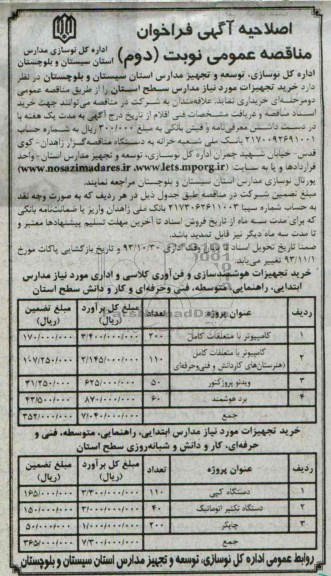 اصلاحیه آگهی فراخوان
مناقصه عمومی نوبت (دوم)
اداره کل نوسازی مدارس
استان سیستان و بلوچستان
اداره کل نوسازی، توسعه و تجهیز مدارس استان سیستان و بلوچستان در نظر
دارد خرید تجهیزات مورد نیاز مدارس سطح استان را از طریق مناقصه عمومی
دومرحله‌ای خریداری نماید. علاقه‌مندان به شرکت در مناقصه می‌توانند جهت خرید
اسناد مناقصه و دریافت مشخصات فنی اقلام از تاریخ درج آگهی به مدت یک هفته با
در دست داشتن معرفی‌نامه و فیش بانکی به مبلغ ۳۰۰/۰۰۰ ریال به شماره حساب
۲۱۷۰۰۹۲۶۹۱۰۰۱ بانک ملی شعبه خزانه به دستگاه مناقصه‌گزار زاهدان - کوی
قدس - خیابان شهید چمران اداره کل نوسازی، توسعه و تجهیز مدارس استان - واحد
قراردادها و یا به سایت (www.nosazimadares.ir ،www.lets.mporg.ir)
پورتال نوسازی مدارس استان سیستان و بلوچستان مراجعه نمایند.
مبلغ تضمین شرکت در مناقصه طبق جدول ذیل در هر ردیف که به صورت وجه نقد
به حساب شماره سیبا ۲۱۷۳۰۶۲۶۴۱۰۰۴ بانک ملی زاهدان واریز یا ضمانت‌نامه بانکی
که برای مدت سه ماه از تاریخ فروش اسناد تا آخرین مهلت تسلیم پیشنهادها معتبر و
تا مدت سه ماه دیگر نیز قابل تمدید باشد.
ضمنا تاریخ تحویل اسناد تا پایان وقت اداری ۹۳/۱۰/۳۰ و تاریخ بازگشایی پاکات مورخ
۹۳/۱۱/۱ تغییر می‌یابد.
خرید تجهیزات هوشمندسازی و فن‌آوری کلاسی و اداری مورد نیاز مدارس
ابتدایی، راهنمایی، متوسطه، فنی وحرفه‌ای و کار و دانش سطح استان
ردیف عنوان پروژه تعداد مبلغ کل برآورد (ریال) مبلغ تضمین (ریال)
۱ کامپیوتر با متعلقات کامل ۲۰۰ ۳/۴۰۰/۰۰۰/۰۰۰ ۱۷۰/۰۰۰/۰۰۰
۲ کامپیوتر با متعلقات کامل (هنرستان‌های کاردانش و فنی‌وحرفه‌ای) ۱۱۰ ۲/۱۴۵/۰۰۰/۰۰۰ ۱۰۷/۲۵۰/۰۰۰
۳ ویدئو پروژکتور ۵۰ ۶۲۵/۰۰۰/۰۰۰ ۳۱/۲۵۰/۰۰۰
۴ برد هوشمند ۶۰ ۸۷۰/۰۰۰/۰۰۰ ۴۳/۵۰۰/۰۰۰
جمع ۷/۰۴۰/۰۰۰/۰۰۰ ۳۵۲/۰۰۰/۰۰۰
خرید تجهیزات مورد نیاز مدارس ابتدایی، راهنمایی، متوسطه، فنی و
حرفه‌ای، کار و دانش و شبانه‌روزی سطح استان
ردیف عنوان پروژه تعداد مبلغ کل برآورد (ریال) مبلغ تضمین (ریال)
۱ دستگاه کپی ۱۱۰ ۳/۳۰۰/۰۰۰/۰۰۰ ۱۶۵/۰۰۰/۰۰۰
۲ دستگاه تکثیر اتوماتیک ۴۰ ۳/۰۰۰/۰۰۰/۰۰۰ ۱۵۰/۰۰۰/۰۰۰
۳ چاپگر ۲۰۰ ۱/۰۰۰/۰۰۰/۰۰۰ ۵۰/۰۰۰/۰۰۰
جمع ۷/۳۰۰/۰۰۰/۰۰۰ ۳۶۵/۰۰۰/۰۰۰
روابط عمومی اداره کل نوسازی، توسعه و تجهیز مدارس استان سیستان و بلوچستان